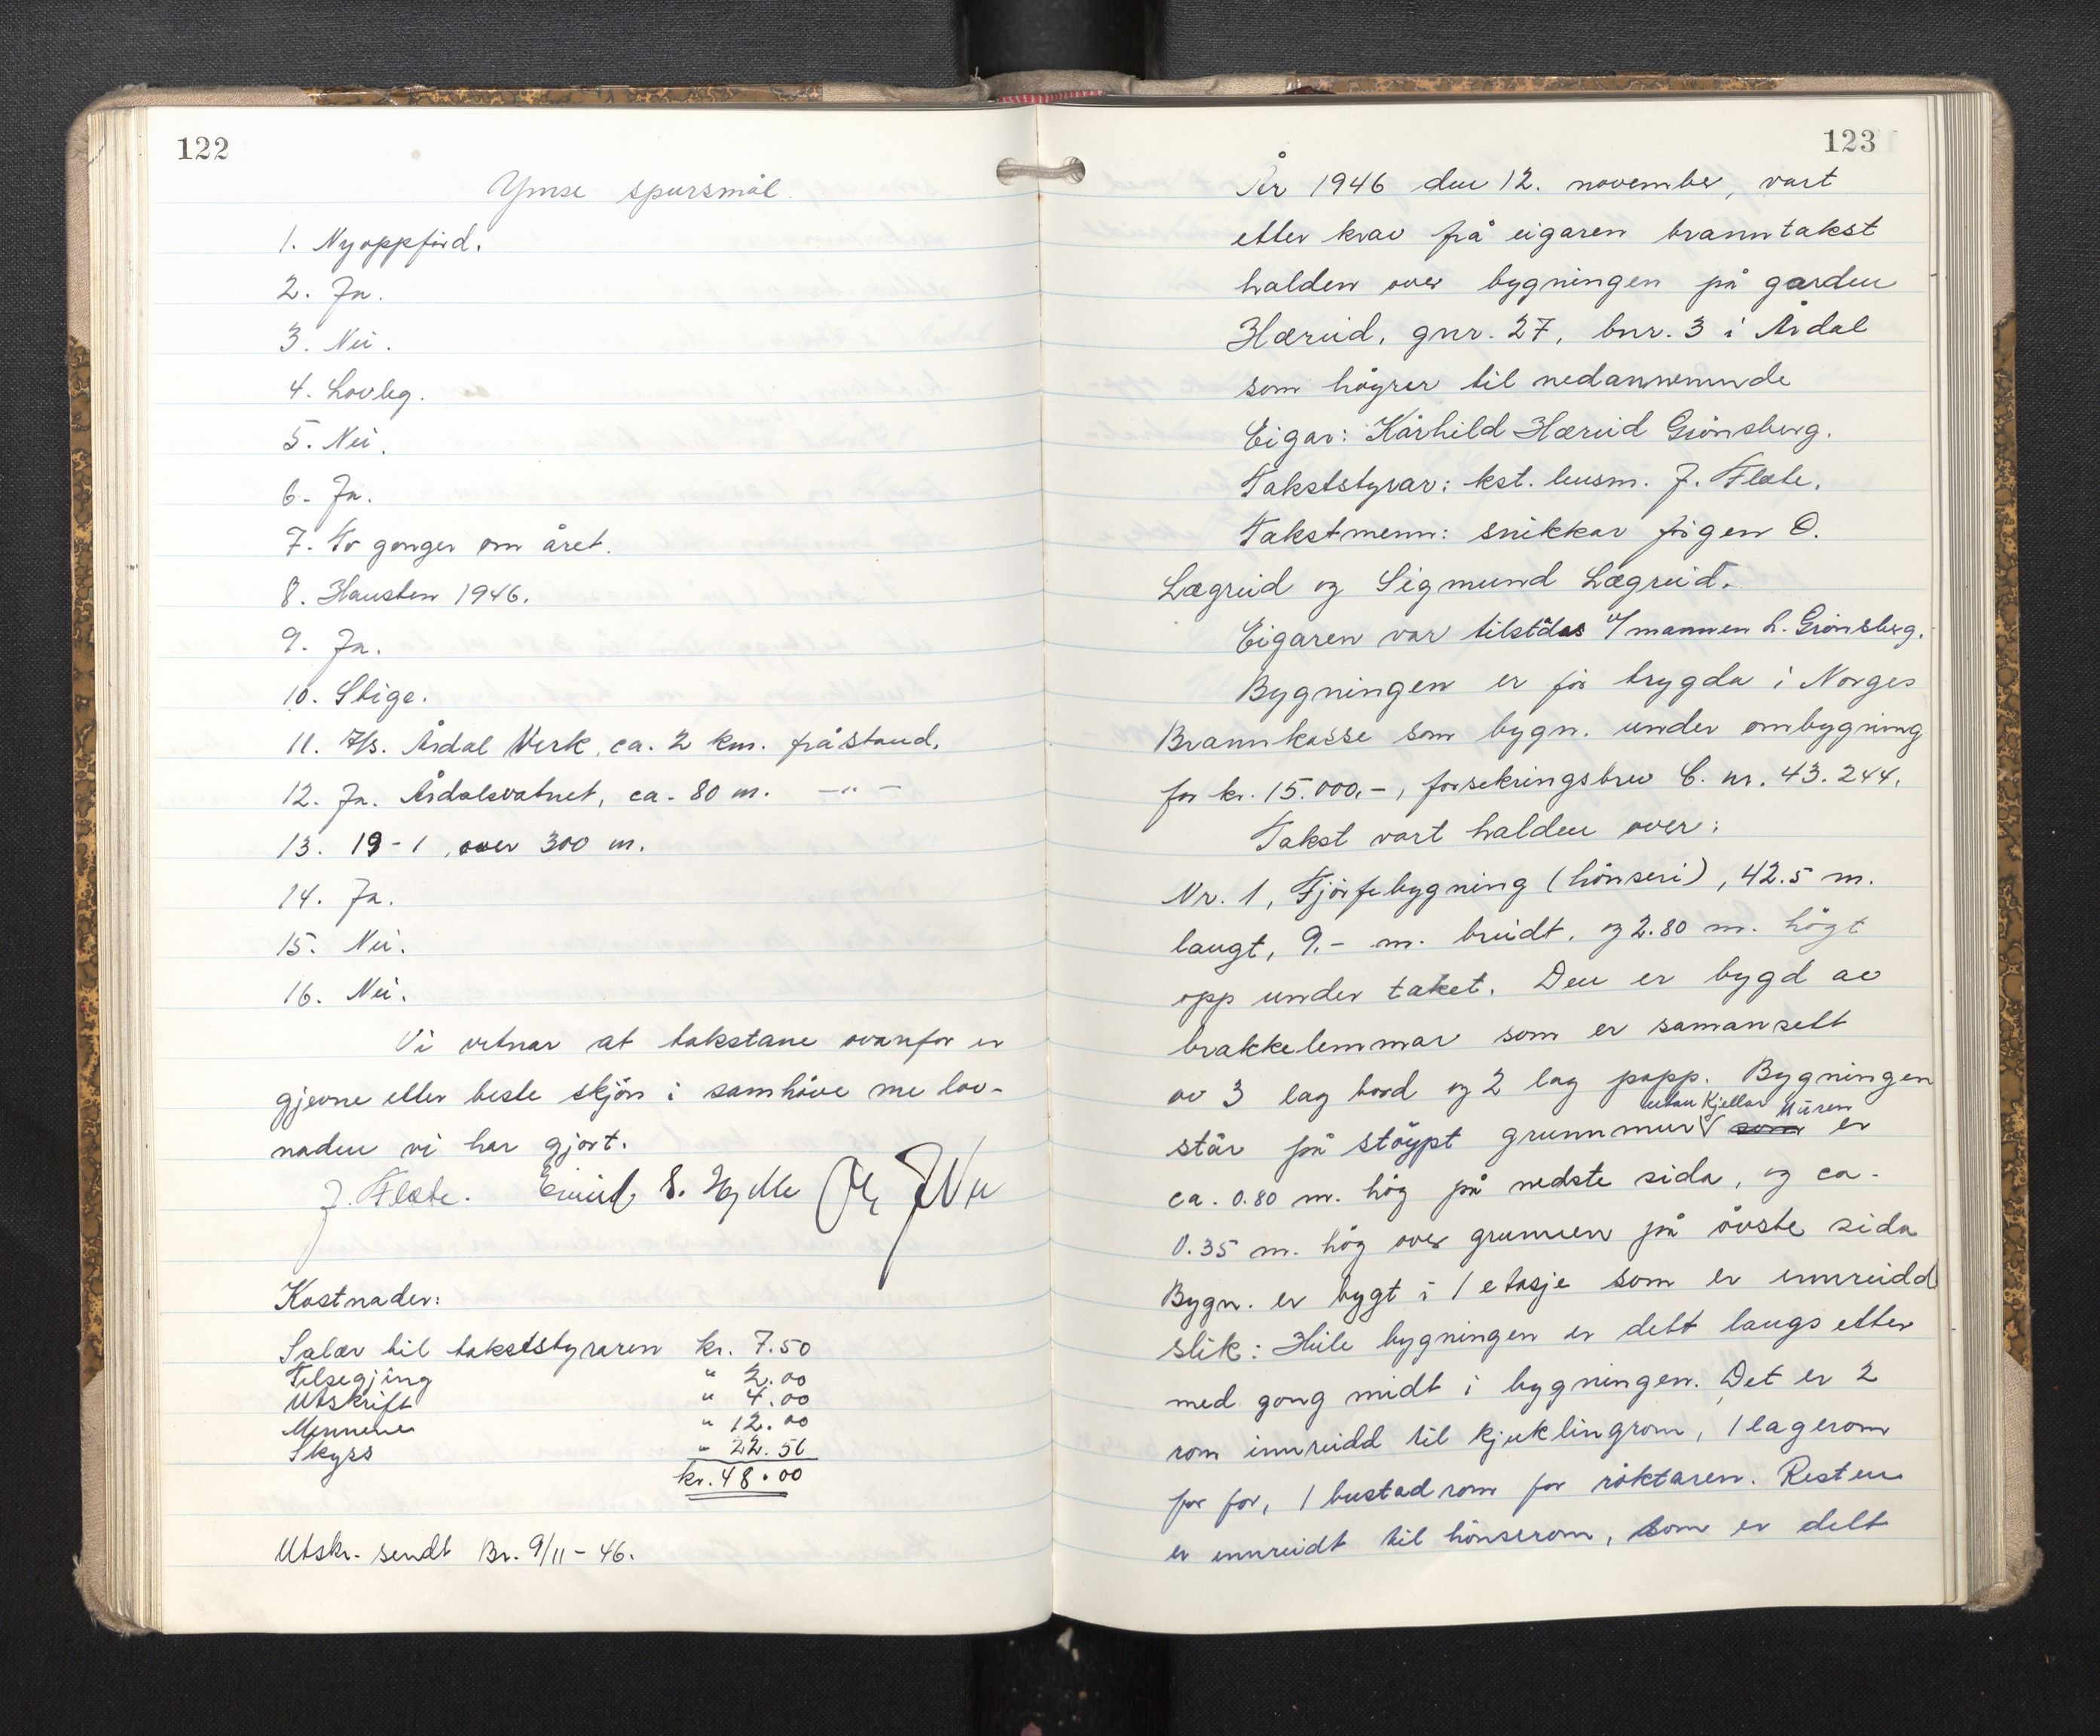 122
Ymse spursmål.
1. Nyoppförd.
2. Ja.
3. Nei.
4. Lovleg.
5. Nei.
6. Ja.
7. To gonger om året.
8. Hausten 1946.
9. Ja.
10. Stige.
11. A/s. Årdal Verk, ca. 2 km. fråstand.
12. Ja. Årdalsvatnet, ca. 80 m. —"—
13. 19-1, over 300 m.
14. Ja.
15. Nei.
16. Nei.
Vi vitnar at takstane ovanfor er
gjevne etter beste skjön i samhöve me lov-
naden vi har gjort.
J. Flæte. Eivind S. Hytte
Kostnader:
Salær til takststyraren kr. 7.50
Tilsegjing " 2.00
Utskrift " 4.00
Mennene " 12.00
Skyss " 22.50
kr. 48.00
Utskr. sendt Br. 9/11-46.
123
År 1946 den 12. november, vart
etter krav frå eigaren branntakst
halden over bygningen på garden
Hæreid, gnr. 27, bnr. 3 i Årdal
som höyrer til nedannemnde
Eigar: Kårhild Hæreid Grönsberg.
Takststyrar: kst. lensm. J. Flæte.
Takstmenn: snikkar Jörgen O.
Lægreid og Sigmund Lægreid.
Eigaren var tilstades v/mannen L. Grönsberg.
Bygningen er för trygda i Norges
Brannkasse som bygn. under ombygning
for kr. 15.000,-, forsekringsbrev C. nr. 43.244.
Takst vart halden over:
Nr. 1, Fjörfebygning (hönseri), 42.5 m.
langt, 9.- m. breidt, og 2.80 m. högt
opp under taket. Den er bygd av
brakkelemmar som er samansett
av 3 lag bord og 2 lag papp. Bygningen
utan kjellar Muren
står på stöypt grunnmur som er
ca. 0.80 m. hög på nedste sida, og ca.
0.35 m. hög over grunnen på övste sida
Bygn. er bygt i 1 etasje som er innreidd
slik: Heile bygningen er delt langs etter
med gong midt i bygningen. Det er 2
rom innreidd til kjuklingrom, 1 lagerom
for for, 1 bustadrom for röktaren. Resten
er innreidt til hönserom, som er delt